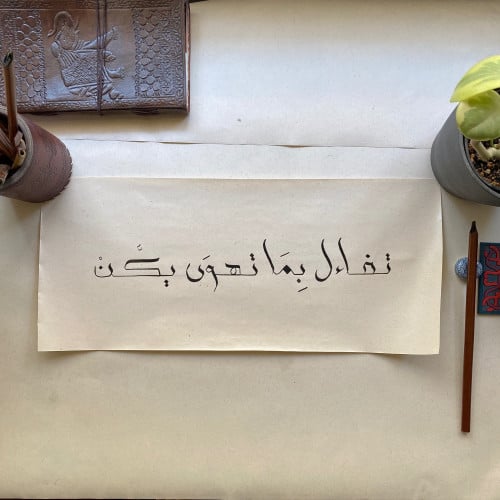 تفاءل بِمَا تهوَى يكُنْ